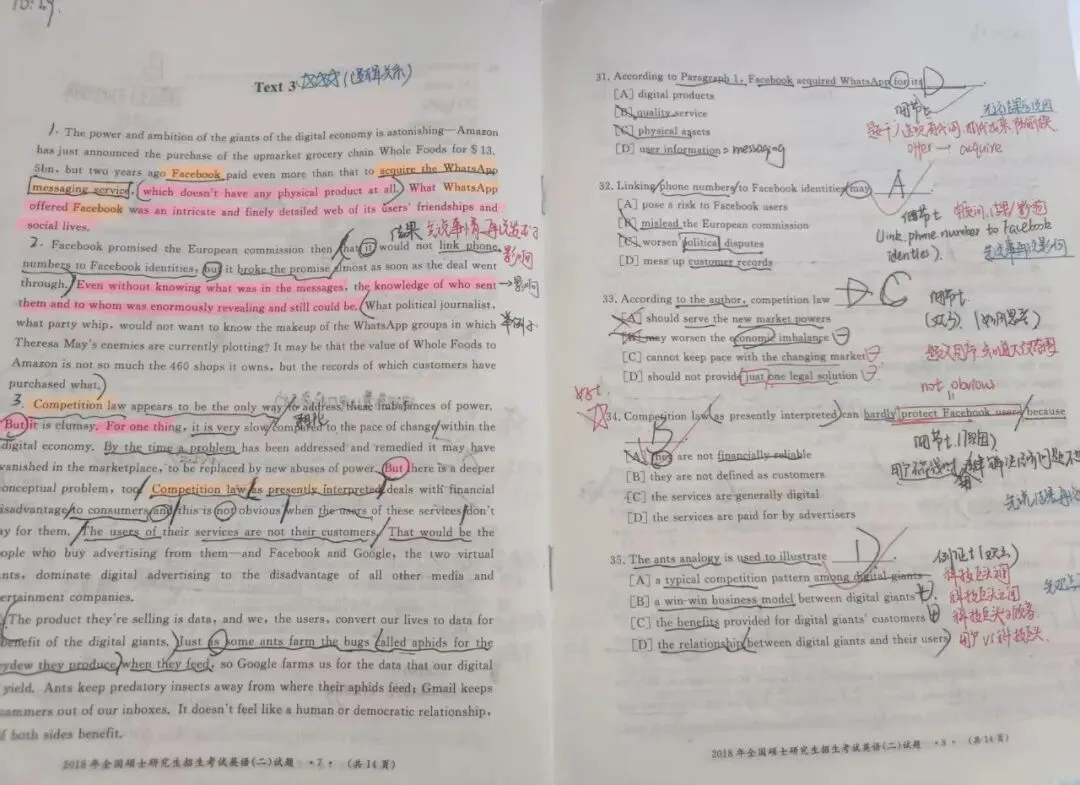 Text 3 (逻辑关系)
1. The power and ambition of the giants of the digital economy is astonishing—Amazon
has just announced the purchase of the upmarket grocery chain Whole Foods for $ 13.
5bn, but two years ago Facebook paid even more than that to acquire the WhatsApp
messaging service, which doesn't have any physical product at all. What WhatsApp
offered Facebook was an intricate and finely detailed web of its users' friendships and
social lives.
结果
影响
2. Facebook promised the European commission then that it would not link phone
numbers to Facebook identities, but it broke the promise almost as soon as the deal went
through. Even without knowing what was in the messages, the knowledge of who sent → 影响
them and to whom was enormously revealing and still could be. What political journalist,
what party whip, would not want to know the makeup of the WhatsApp groups in which 举例子
Theresa May's enemies are currently plotting? It may be that the value of Whole Foods to
Amazon is not so much the 460 shops it owns, but the records of which customers have
purchased what.
3. Competition law appears to be the only way to address these imbalances of power.
But it is clumsy. For one thing, it is very slow compared to the pace of change within the
digital economy. By the time a problem has been addressed and remedied it may have
vanished in the marketplace, to be replaced by new abuses of power. But there is a deeper
conceptual problem, too. Competition law as presently interpreted deals with financial
disadvantage to consumers and this is not obvious when the users of these services don't
ay for them. The users of their services are not their customers. That would be the
ople who buy advertising from them—and Facebook and Google, the two virtual
nts, dominate digital advertising to the disadvantage of all other media and
ertainment companies.
The product they're selling is data, and we, the users, convert our lives to data for
benefit of the digital giants. Just as some ants farm the bugs called aphids for the
eydew they produce when they feed, so Google farms us for the data that our digital
yield. Ants keep predatory insects away from where their aphids feed; Gmail keeps
ammers out of our inboxes. It doesn't feel like a human or democratic relationship,
f both sides benefit.
2018 年全国硕士研究生招生考试英语(二)试题 ·7· (共14页)
31. According to Paragraph 1, Facebook acquired WhatsApp for its D
[A] digital products
[B] quality service
[C] physical assets
[D] user information = messaging
细节士
offer → acquire
32. Linking phone numbers to Facebook identities may A
[A] pose a risk to Facebook users
[B] mislead the European commission
[C] worsen political disputes
[D] mess up customer records
细节士
(link phone number to Facebook
identies).
33. According to the author, competition law D C
[A] should serve the new market powers
[B] may worsen the economic imbalance
[C] cannot keep pace with the changing market
[D] should not provide just one legal solution
细节士
not obvious
34. Competition law as presently interpreted can hardly protect Facebook users because
B
[A] they are not financially reliable
[B] they are not defined as customers
[C] the services are generally digital
[D] the services are paid for by advertisers
35. The ants analogy is used to illustrate D
[A] a typical competition pattern among digital giants
[B] a win-win business model between digital giants
[C] the benefits provided for digital giants' customers
[D] the relationship between digital giants and their users
例证士(观点)
科技巨头间
科技巨头之间
科技巨头与顾客
用户 VS 科技巨头
2018 年全国硕士研究生招生考试英语(二)试题 ·8· (共14页)